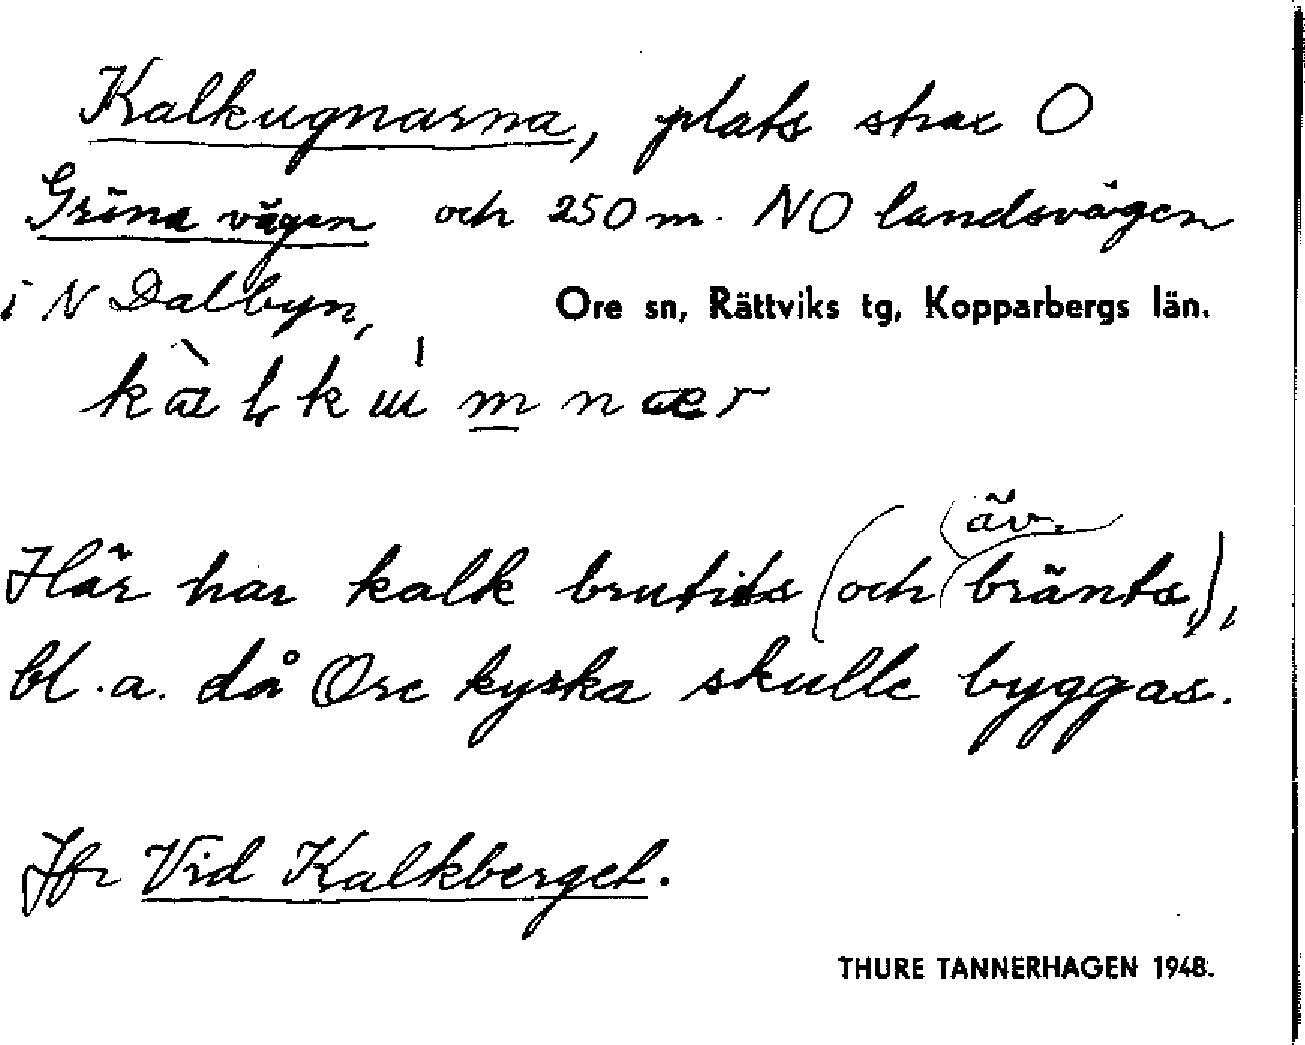 Kalkugnarna, plats strax O
Gröna vägen och 250 m. NO landsvägen
i N Dalbyn, Ore sn, Rättviks tg, Kopparbergs län.
Här har kalk brutits (och äv. bränts),
bl.a. då Ore kyrka skulle byggas.
Jfr Vid Kalkberget.
THURE TANNERHAGEN 1948.